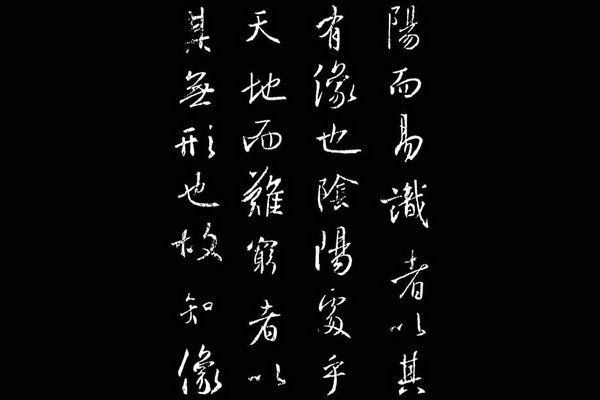 陽而易識者以其
有像也陰陽處乎
天地而難窮者以
其無形也故知像